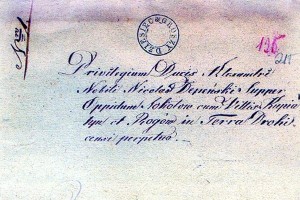 Nro 1
DZIESIĘĆ GROSZY
195
211
Privilegium Ducis Alexandri
Nobili Nicolao Depenski supper
Oppidum Sokolow cum Villis Kupin
tyn et Rogow in Terra Drohi
censi perpetuo.